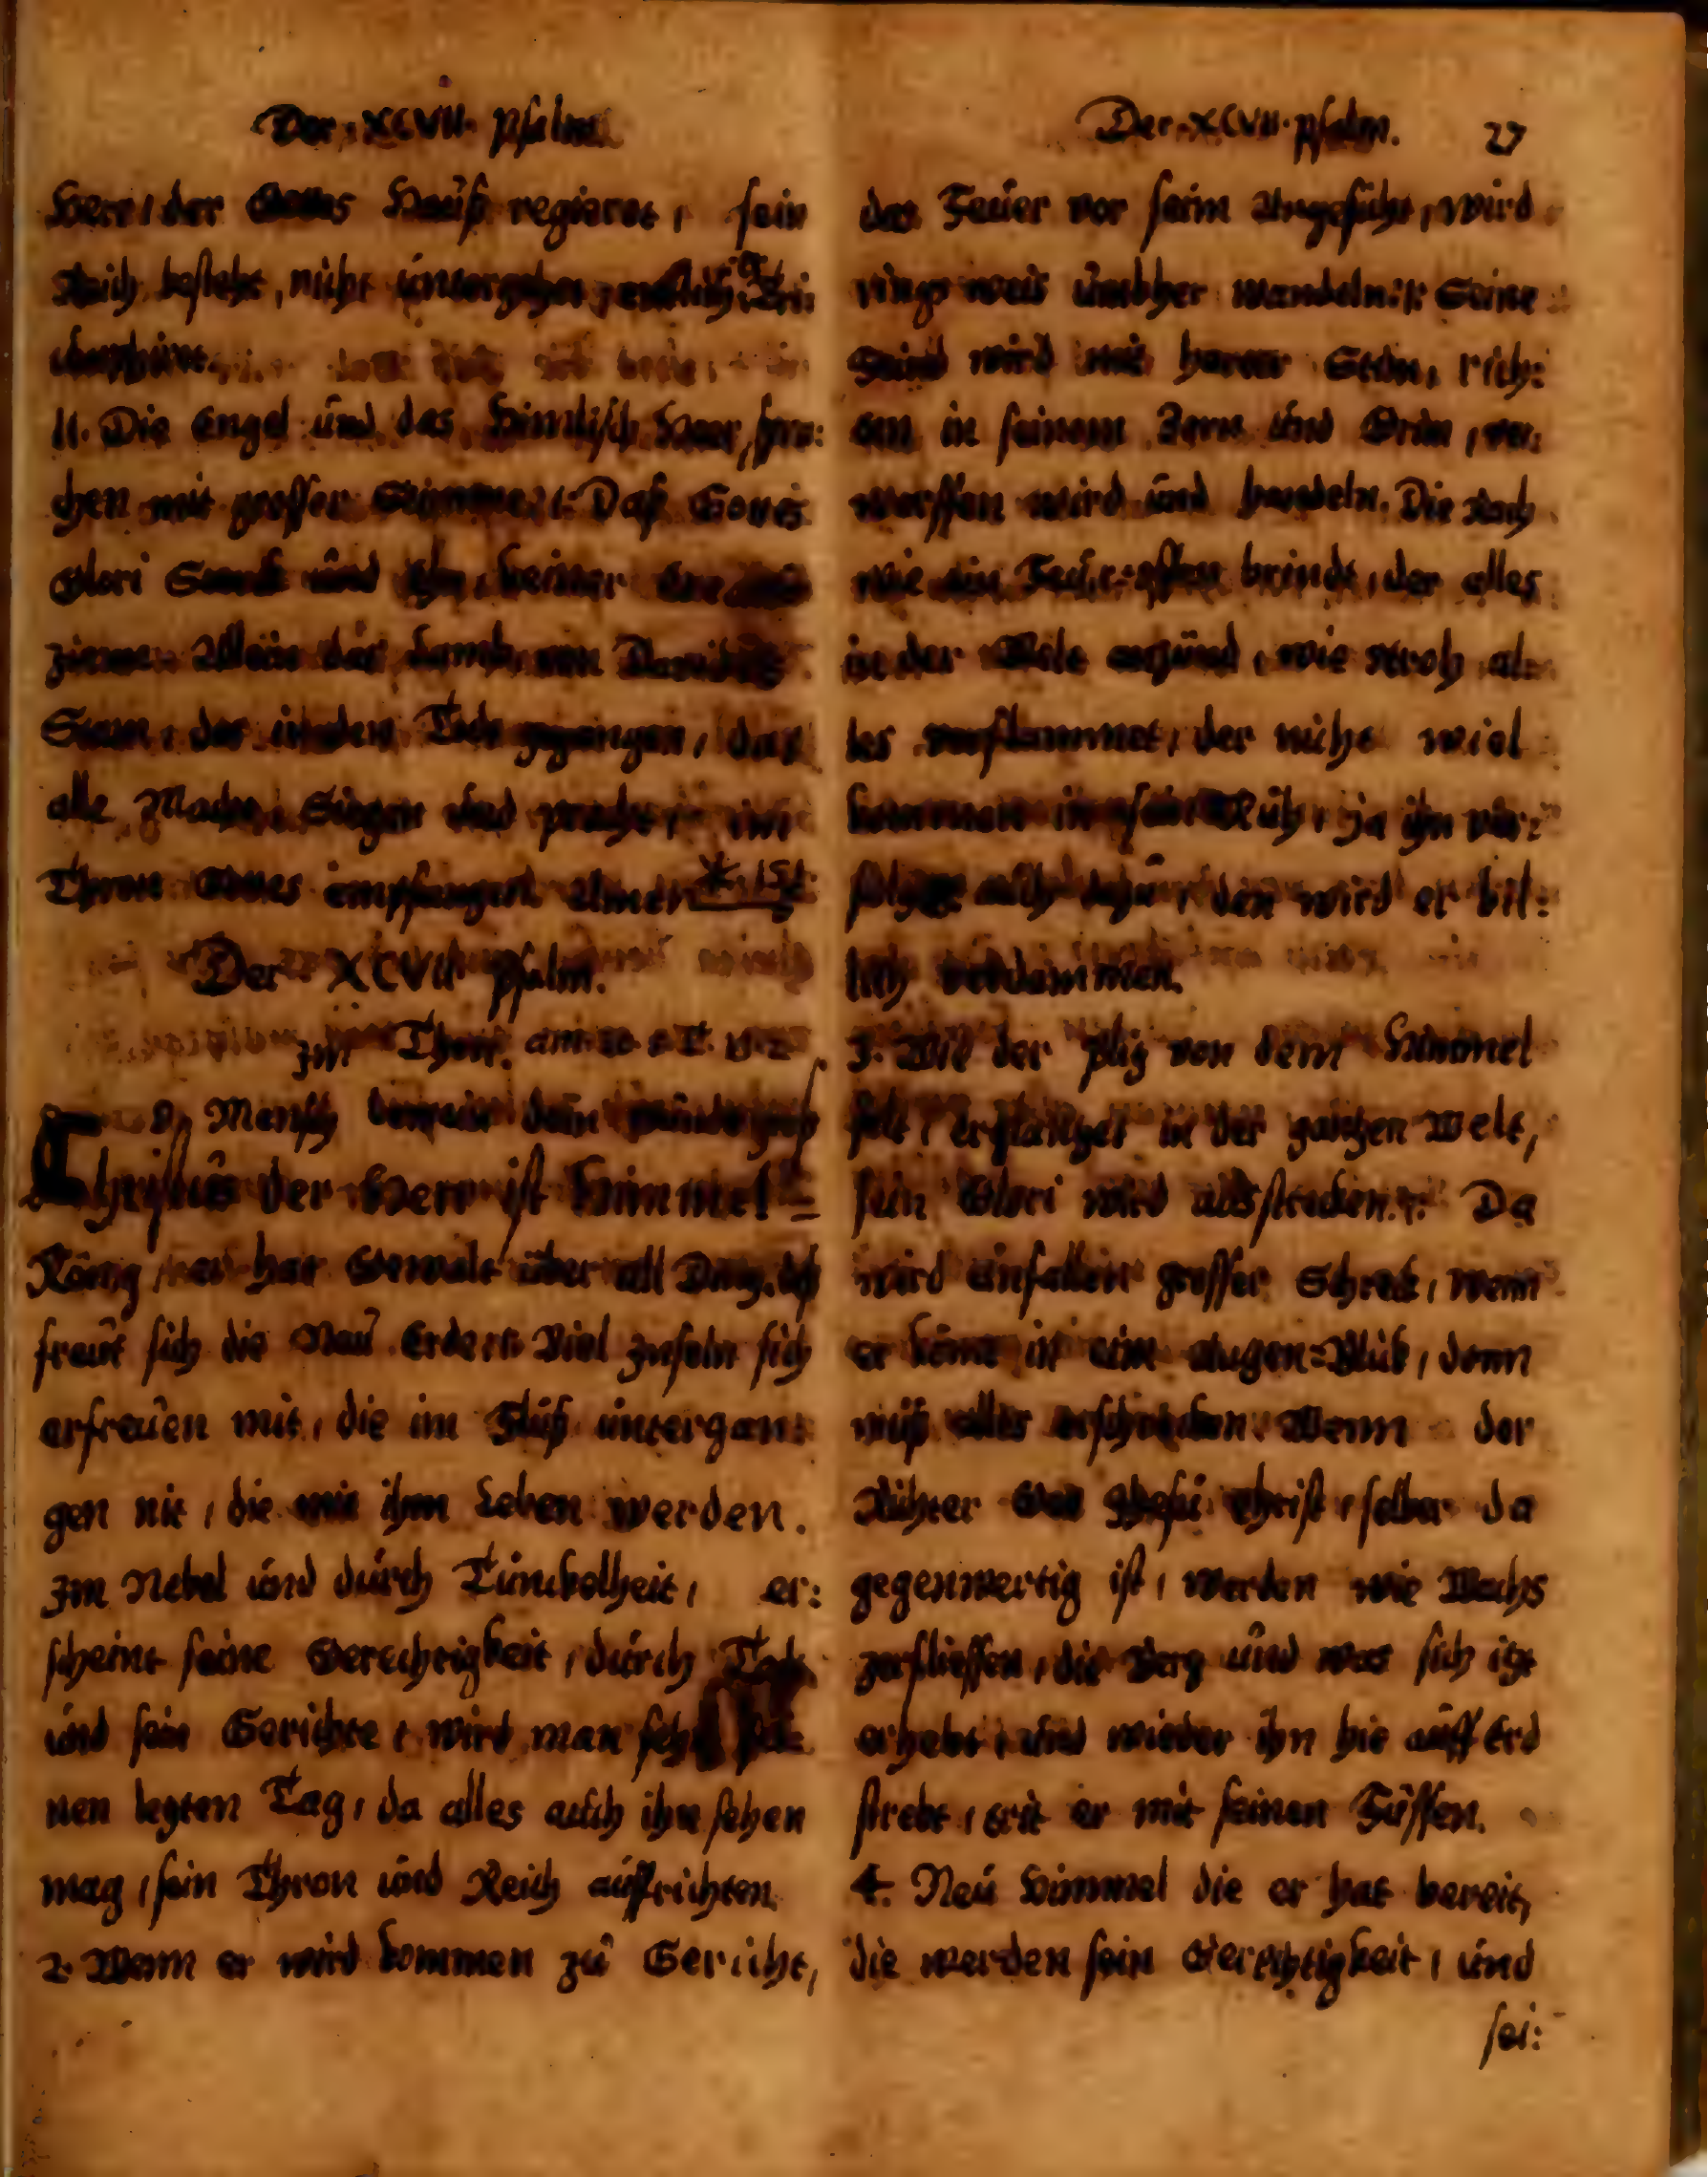 Der XCVII Psalm
Herr, der Gottes Hauß regieret, sein
Reich besteht, nicht untergehet,
11. Die Engel und das Himlisch Heer, spre:
chen mit grosser Stimme :|: Daß Gottes
Glori und keiner
Allein das Lamb, von
Stam, der in den Todt gegangen, das
alle Macht, Singen und pracht, im
Thron Gottes empfangen
Der XCVII Psalm.
im Thon.
O Mensch bewein dein Sünde groß
Christus der Herr ist Himmel =
König, er hat Gewalt über all Ding, deß
freut sich die Neu Erde :|: Viel Inseln sich
erfreuen mit, die im Fluß untergan:
gen nit, die mit ihm Leben werden.
Im Nebel und durch Tunckelheit, er:
scheint seine Gerechtigkeit, durch Todt
und sein Gerichte, wird man sehn
nen letzten Tag, da alles auch ihn sehen
mag, sein Thron und Reich auffrichten.
2. Wenn er wird kommen zu Gericht,
Der XCVII Psalm. 27
das Feuer vor seim Angesicht, wird
rings weis umbher wandeln :|: Seine
Feind wird mit rich:
ten in seinem Zorn und Grim, ver:
werffen wird und handeln. Die Rach
wie ein Feur=offen brindt, der alles
in der Welt anzünd, wie Stroh al:
les verflammet, der nicht wiel
kommen in sein Reich, ja ihn ver:
folget auch dazu, den wird er bil:
lich verdammen.
3. Wie der plitz von dem Himmel
felt, erglantzet in der gantzen Welt,
sein Glori wird ausstrecken :|: Da
wird einfallen grosser Schreck, wenn
er kömt in eim Augen=Blick, denn
muß alles erschrecken. Wenn der
Richter Jhesu Christ, selber da
gegenwertig ist, werden wie Wachs
zerfliessen, die Berg und was sich itzt
erhebt, und wieder ihn hie auff Erd
strebt, trit er mit seinen Füssen.
4. Neu Himmel die er hat bereit,
die werden sein Gerechtigkeit, und
sei: